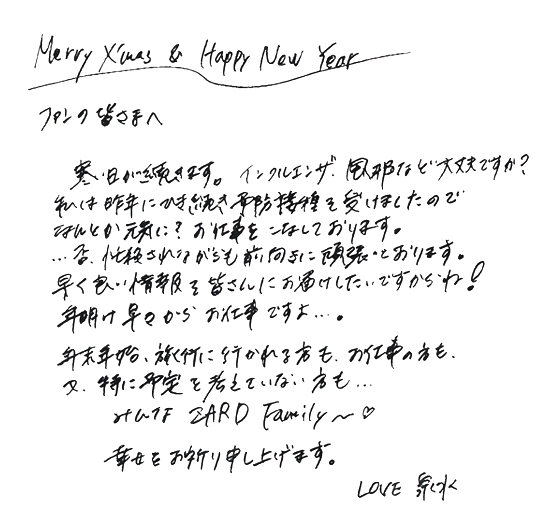 Merry X'mas & Happy New Year
ファンの皆さまへ
寒い日が続きます。インフルエンザ、風邪など大丈夫ですか?
私は昨年にひき続き予防接種を受けましたので
なんとか元気に?お仕事をこなしております。
…否、忙殺されながらも前向きに頑張っております。
早く良い情報を皆さんにお届けしたいですからね!
年明け早々からお仕事ですよ…。
年末年始、旅行に行かれる方も、お仕事の方も、
又、特に予定を考えていない方も…
みんな ZARD Family〜♡
幸せをお祈り申し上げます。
LOVE 泉水